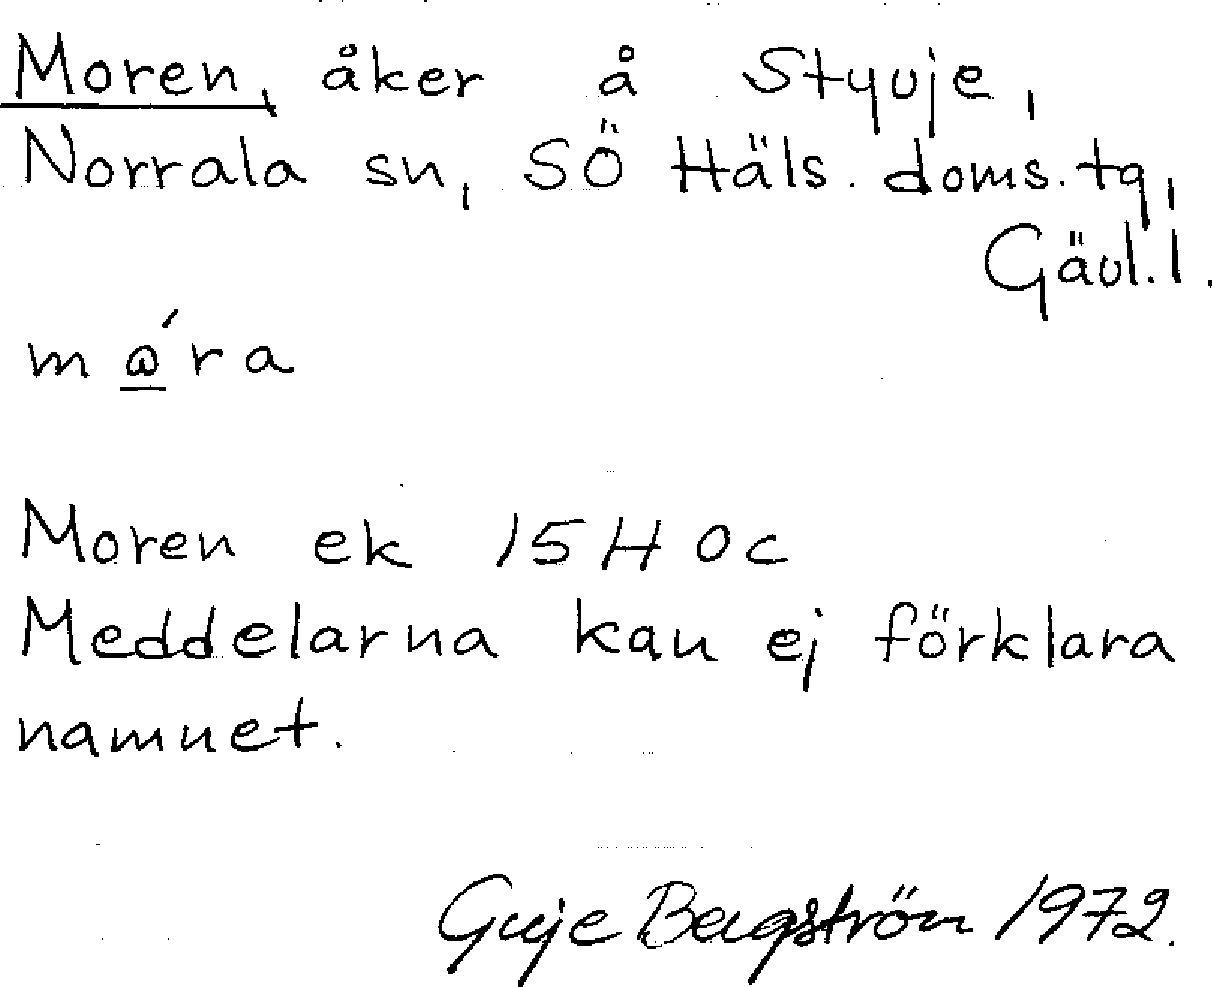 Moren, åker å Styvje,
Norrala sn, SÖ Häls. doms. tg,
Gävl. l.
mɷ́ra
Moren ek 15H 0c
Meddelarna kan ej förklara
namnet.
Guje Bergström 1972.